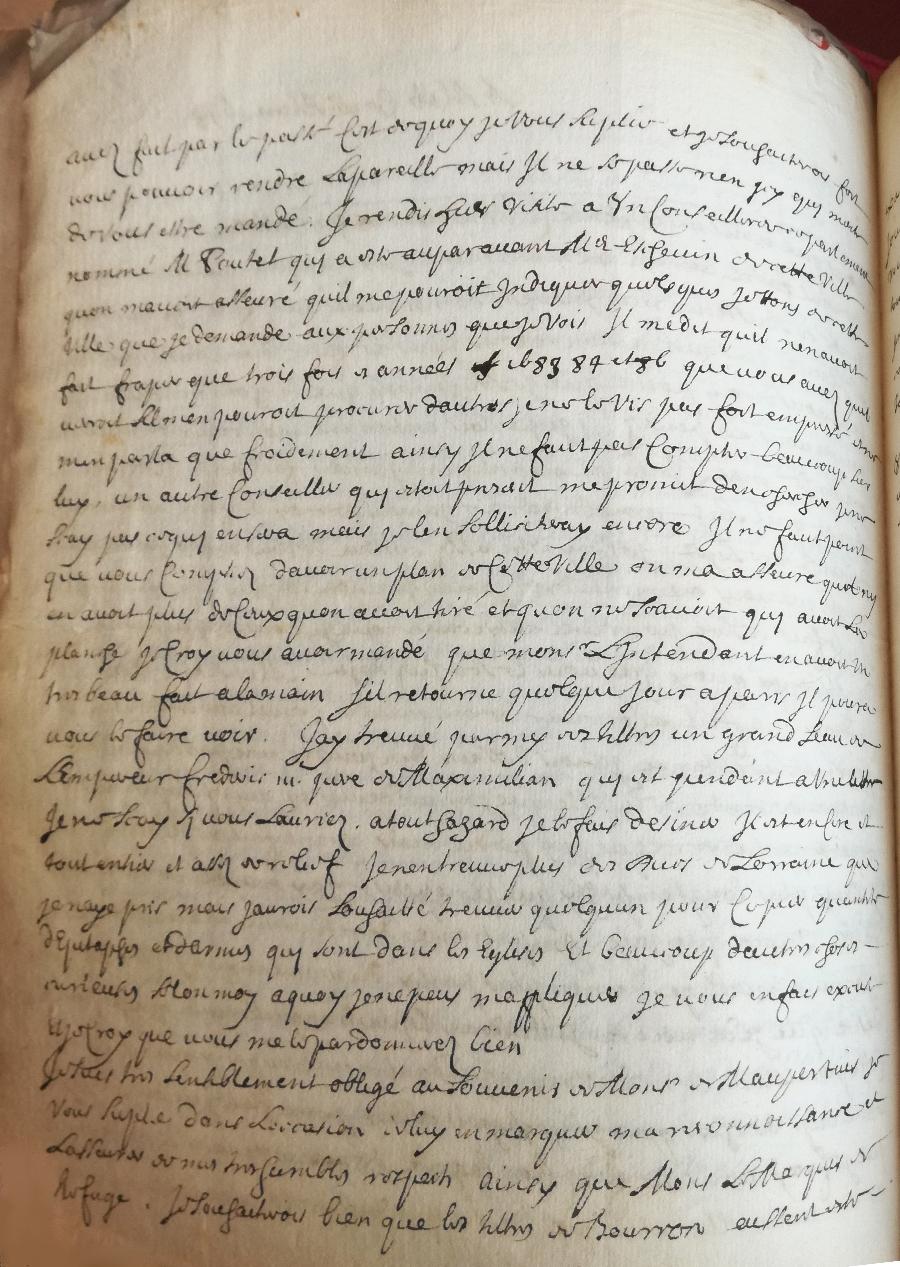 avez fait par le passé Cest dequoy je vous suplie et je souhaiterois fort
vous pouvoir rendre Lapareille mais Il ne se passe rien jcy quy merite
de vous estre mandé. Je rendis hier visite a Vn Conseiller de ce parlement
nommé Mr Poutet quy a esté auparavant Me Eschevin de cette ville
quon mavoit asseuré quil me pouroit Indiquer quelques Jettons de cette
ville que je demande aux personnes que je vois Il me dit quil nenavoit
fait fraper que trois fois es années 1683 84 et 86 que vous avez quil
verroit sil men pouroit procurer dautres je ne le vis pas fort empressé et ne
men parla que froidement ainsy Il ne faut pas Compter beaucoup sur
luy, un autre Conseiller quy estoit present me promit den chercher je ne
scay pas ce quy en sera mais je len solliciteray encore Il ne faut point
que vous Comptiez davoir un plan de Cette Ville on ma asseure quil ny
en avoit plus de Ceux quon avoit tiré et quon ne scavoit quy avoit La
planche je Croy vous avoir mandé que monsr LIntendant en avoit un
tres beau fait alamain sil retourne quelque jour a paris Il poura
vous le faire voir. Jay treuvé parmy des tiltres un grand seau de
LEmpereur frederic III. pere de Maximilian quy est pendant a
Je ne scay sy vous Lauriez. a tout hazard je le fais desiner Il est encore
tout entier et assez de relief Je nen treuve plus des Ducs de Lorraine que
je naye pris mais jaurois souhaitté treuver quelquun pour Copier quantité
dEpitaphes et darmes quy sont dans les Eglises Et beaucoup dautres choses
curieuses selon moy a quoy je ne peus mappliquer Je vous en fais excuse
Et je Croy que vous me le pardonnerez bien
Je suis tres sensiblement obligé au souvenir de Monsr de Maupertuis je
vous suplie dans Loccasion de luy en marquer ma reconnoissance et
Lasseurer de mes tres humbles respects ainsy que Mons Le Marquis de
Refuge. Je souhaiterois bien que les tiltres de Bourron eussent esté